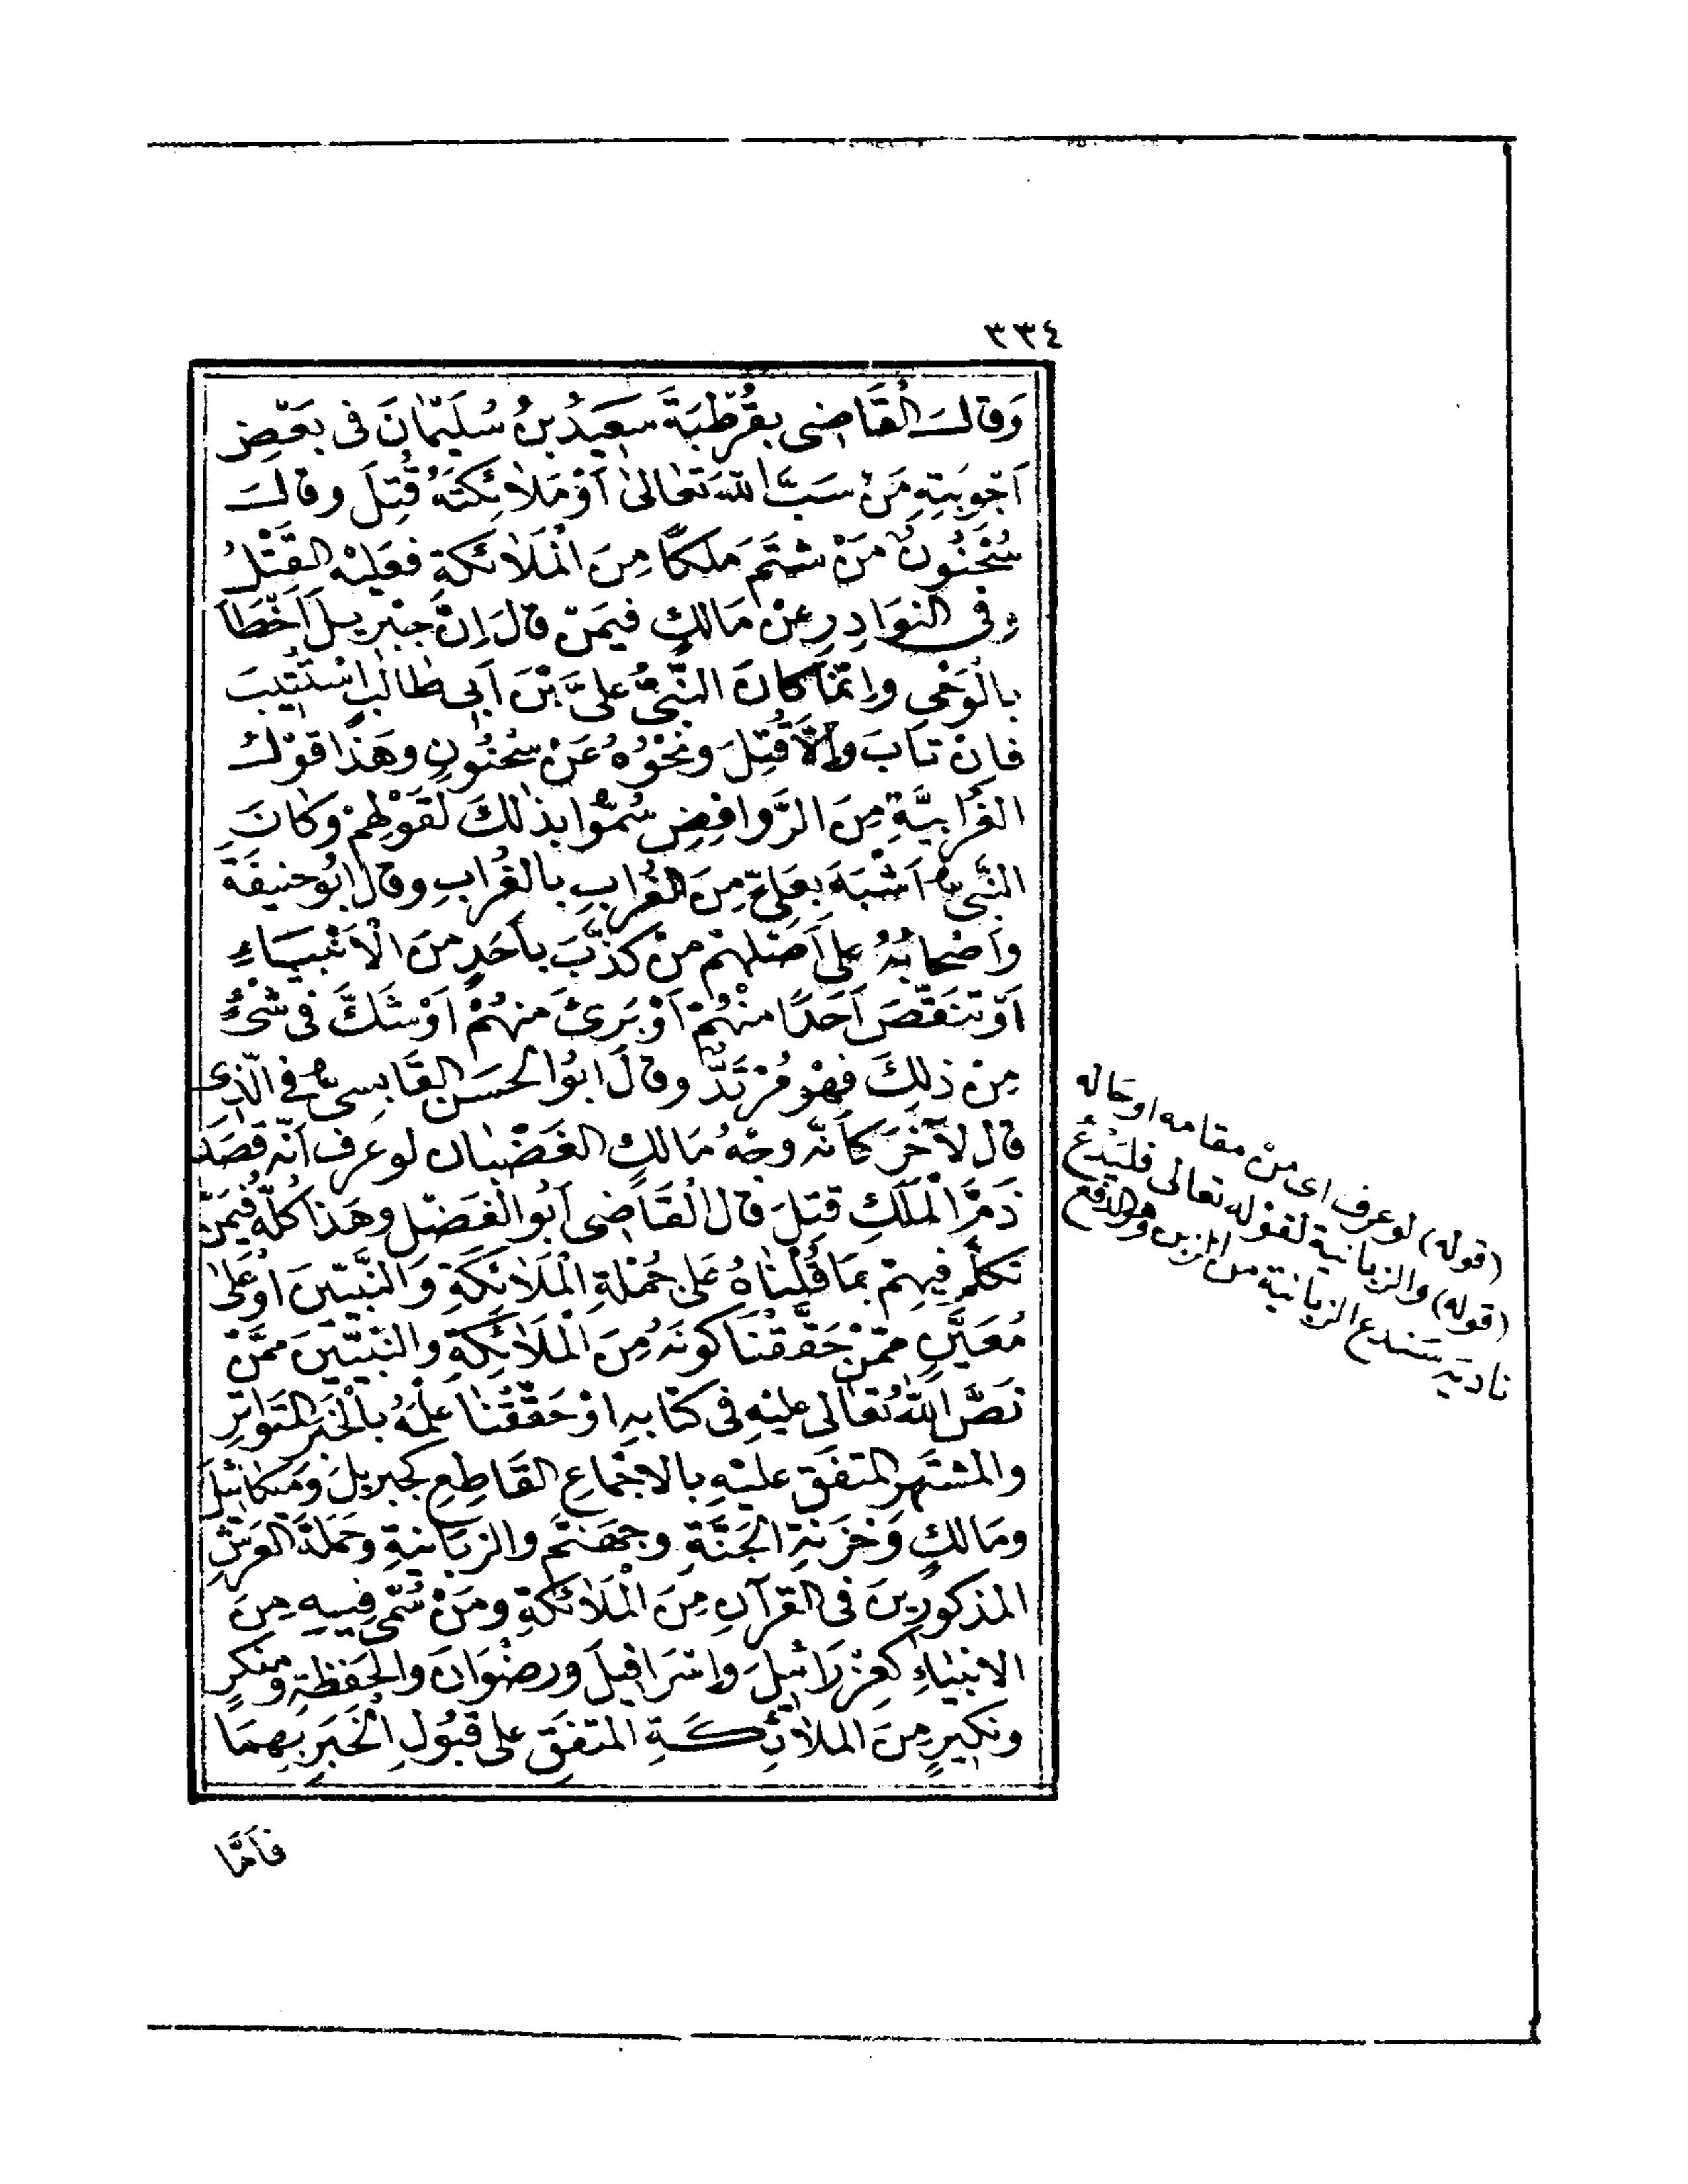 ٣٣٤
وَقَالَ الْقَاضِى بِقُرْطُبَةَ سَعِيدُ بْنُ سُلَيْمَانَ فى بَعْضِ
اَجْوِبَتِهِ مَنْ سَبَّ اللهَ تَعَالىٰ اَوْ مَلَائِكَتَهُ قُتِلَ وقَالَ
سُحْنُونٌ مَنْ شَتَمَ مَلَكًا مِنَ الْمَلَائِكَةِ فَعَلَيْهِ الْقَتْلُ
وفى النَوَادِرِ عَنْ مَالِكٍ فيمَنْ قَالَ إِنَّ جِبْرِيلَ اَخْطَأَ
بالْوَحْىِ واِنَّمَا كانَ النَّبِىُّ عَلىَّ بْنَ اَبِى طَالِبٍ اُسْتُتِيبَ
فانْ تَابَ واِلَّا قُتِلَ ونَحْوُهُ عَنْ سُحْنُونٍ وهَذَا قَوْلُ
الغُرَابِيَّةِ مِنَ الرَّوَافِضِ سُمُّوا بذٰلِكَ لقَوْلِهِمْ وَكَانَ
النَّبِىُّ اَشْبَهَ بِعَلِىٍّ مِنَ الغُرَابِ بالغُرَابِ وقالَ ابُو حَنِيفَةَ
واَصْحَابُهُ عَلى اَصْلِهِمْ مَنْ كَذَّبَ باَحَدٍ مِنَ الْاَنْبِيَاءِ
اَوْ تَنَقَّصَ اَحَدًا مِنْهُمْ اَوْ بَرِئَ مِنْهُمْ اَوْ شَكَّ فى شَىْءٍ
مِنْ ذٰلِكَ فَهُوَ مُرْتَدٌّ وقَالَ ابُو الحَسَنِ القَابِسِىُّ فى الَّذِى
قال لآخَرَ كَاَنَّهُ وجْهُ مَالِكٍ الغَضْبَانِ لو عرف اَنَّهُ قَصَدَ
ذَمَّ الْمَلَكِ قُتِلَ قال الْقَاضِى اَبُو الْفَضْلِ وهَذَا كُلُّهُ فِيمَنْ
تَكَلَّمَ فِيهِمْ بِمَا قُلْنَاهُ عَلى جُمْلَةِ الْمَلَائِكَةِ وَالنَّبِيِّينَ اَوْ عَلىٰ
مُعَيَّنٍ مِمَّنْ حَقَّقْنَا كَوْنَهُ مِنَ الْمَلَائِكَةِ والنَّبِيِّينَ مِمَّنْ
نَصَّ اللهُ تَعَالى عليْهِ فى كتَابِهِ اَوْ حَقَّقْنَا عِلْمَهُ بالْخَبَرِ الْمُتَوَاتِرِ
والمشْتَهِرِ المتفَقِ عليْهِ بالاِجْمَاعِ القَاطِعِ كجبريلَ وَمِيكَائِيلَ
ومَالِكٍ وَخَزَنَةِ الْجَنَّةِ وجَهَنَّمَ والزبَانِيَةِ وحَمَلَةِ العَرْشِ
المذكورِينَ فى القرآنِ مِنَ الْمَلَائِكَةِ ومَنْ سُمِّىَ فيهِ مِنَ
الانبيَاءِ كَعِزْرَائِيلَ واِسْرَافِيلَ ورِضْوَانَ والحَفَظَةِ ومُنكرٍ
ونكيرٍ مِنَ الملَائِكَةِ المتفَقِ على قَبُولِ الْخَبَرِ بِهِمَا
(قوله) لو عرف اى منْ مقامه او حاله
(قوله) والزبانية لقوله تعالى فليَدْعُ
ناديَه سَنَدع الزبانية من الزبن وهو الدفع
فَاَمَّا